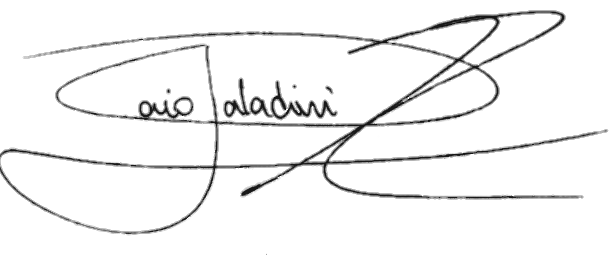 Caio Paladini